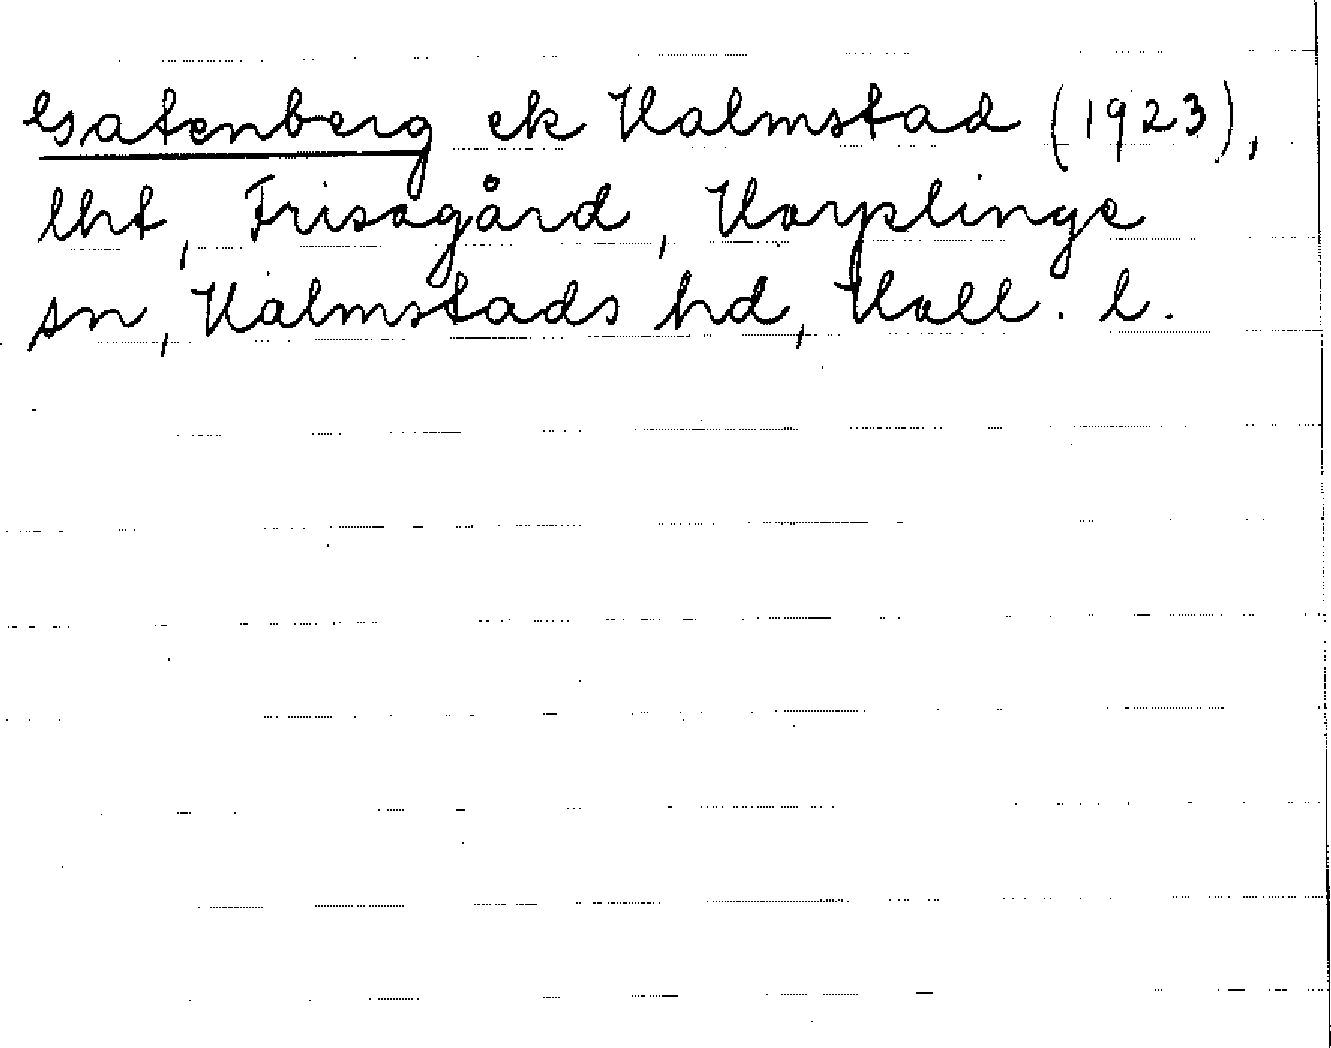 Gatenberg ek Halmstad (1923),
lht, Frisagård, Harplinge
sn, Halmstads hd, Hall. l.